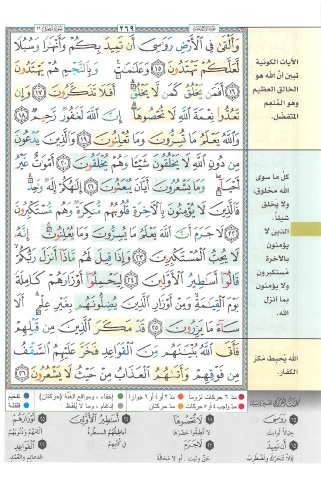 ٢٦٩
وَأَلْقَىٰ فِي الْأَرْضِ رَوَاسِيَ أَن تَمِيدَ بِكُمْ وَأَنْهَارًا وَسُبُلًا
لَّعَلَّكُمْ تَهْتَدُونَ ١٥ وَعَلَامَاتٍ ۚ وَبِالنَّجْمِ هُمْ يَهْتَدُونَ
١٦ أَفَمَن يَخْلُقُ كَمَن لَّا يَخْلُقُ ۗ أَفَلَا تَذَكَّرُونَ ١٧ وَإِن
تَعُدُّوا نِعْمَةَ اللَّهِ لَا تُحْصُوهَا ۗ إِنَّ اللَّهَ لَغَفُورٌ رَّحِيمٌ ١٨
وَاللَّهُ يَعْلَمُ مَا تُسِرُّونَ وَمَا تُعْلِنُونَ ١٩ وَالَّذِينَ يَدْعُونَ
مِن دُونِ اللَّهِ لَا يَخْلُقُونَ شَيْئًا وَهُمْ يُخْلَقُونَ ٢٠ أَمْوَاتٌ غَيْرُ
أَحْيَاءٍ ۖ وَمَا يَشْعُرُونَ أَيَّانَ يُبْعَثُونَ ٢١ إِلَٰهُكُمْ إِلَٰهٌ وَاحِدٌ ۚ
فَالَّذِينَ لَا يُؤْمِنُونَ بِالْآخِرَةِ قُلُوبُهُم مُّنكِرَةٌ وَهُم مُّسْتَكْبِرُونَ
٢٢ لَا جَرَمَ أَنَّ اللَّهَ يَعْلَمُ مَا يُسِرُّونَ وَمَا يُعْلِنُونَ ۚ إِنَّهُ
لَا يُحِبُّ الْمُسْتَكْبِرِينَ ٢٣ وَإِذَا قِيلَ لَهُم مَّاذَا أَنزَلَ رَبُّكُمْ ۙ
قَالُوا أَسَاطِيرُ الْأَوَّلِينَ ٢٤ لِيَحْمِلُوا أَوْزَارَهُمْ كَامِلَةً
يَوْمَ الْقِيَامَةِ ۙ وَمِنْ أَوْزَارِ الَّذِينَ يُضِلُّونَهُم بِغَيْرِ عِلْمٍ ۗ أَلَا
سَاءَ مَا يَزِرُونَ ٢٥ قَدْ مَكَرَ الَّذِينَ مِن قَبْلِهِمْ
فَأَتَى اللَّهُ بُنْيَانَهُم مِّنَ الْقَوَاعِدِ فَخَرَّ عَلَيْهِمُ السَّقْفُ
مِن فَوْقِهِمْ وَأَتَاهُمُ الْعَذَابُ مِنْ حَيْثُ لَا يَشْعُرُونَ ٢٦
الآيات الكونية
تبين أنّ الله هو
الخالق العظيم
وهو المُنعِم
المتفضل.
كلّ ما سوى
الله مخلوق،
ولا يخلق
شيئاً.
الذين لا
يؤمنون
بالآخرة
مستكبرون
ولا يؤمنون
بما أنزل
الله.
الله يُحبط مكر
الكفار.
مد ٦ حركات لزوماً
مد ٢ أو ٤ أو ٦ جوازاً
إخفاء، ومواقع الغُنَّة (حركتان)
تفخيم
مد واجب ٤ أو ٥ حركات
مد حركتان
إدغام، وما لا يُلفَظ
قلقلة
رَوَاسِيَ
جبالاً ثوابت
لَا تُحْصُوهَا
أَسَاطِيرُ الْأَوَّلِينَ
أَوْزَارَهُمْ
أَن تَمِيدَ
لَا جَرَمَ
الْقَوَاعِدِ